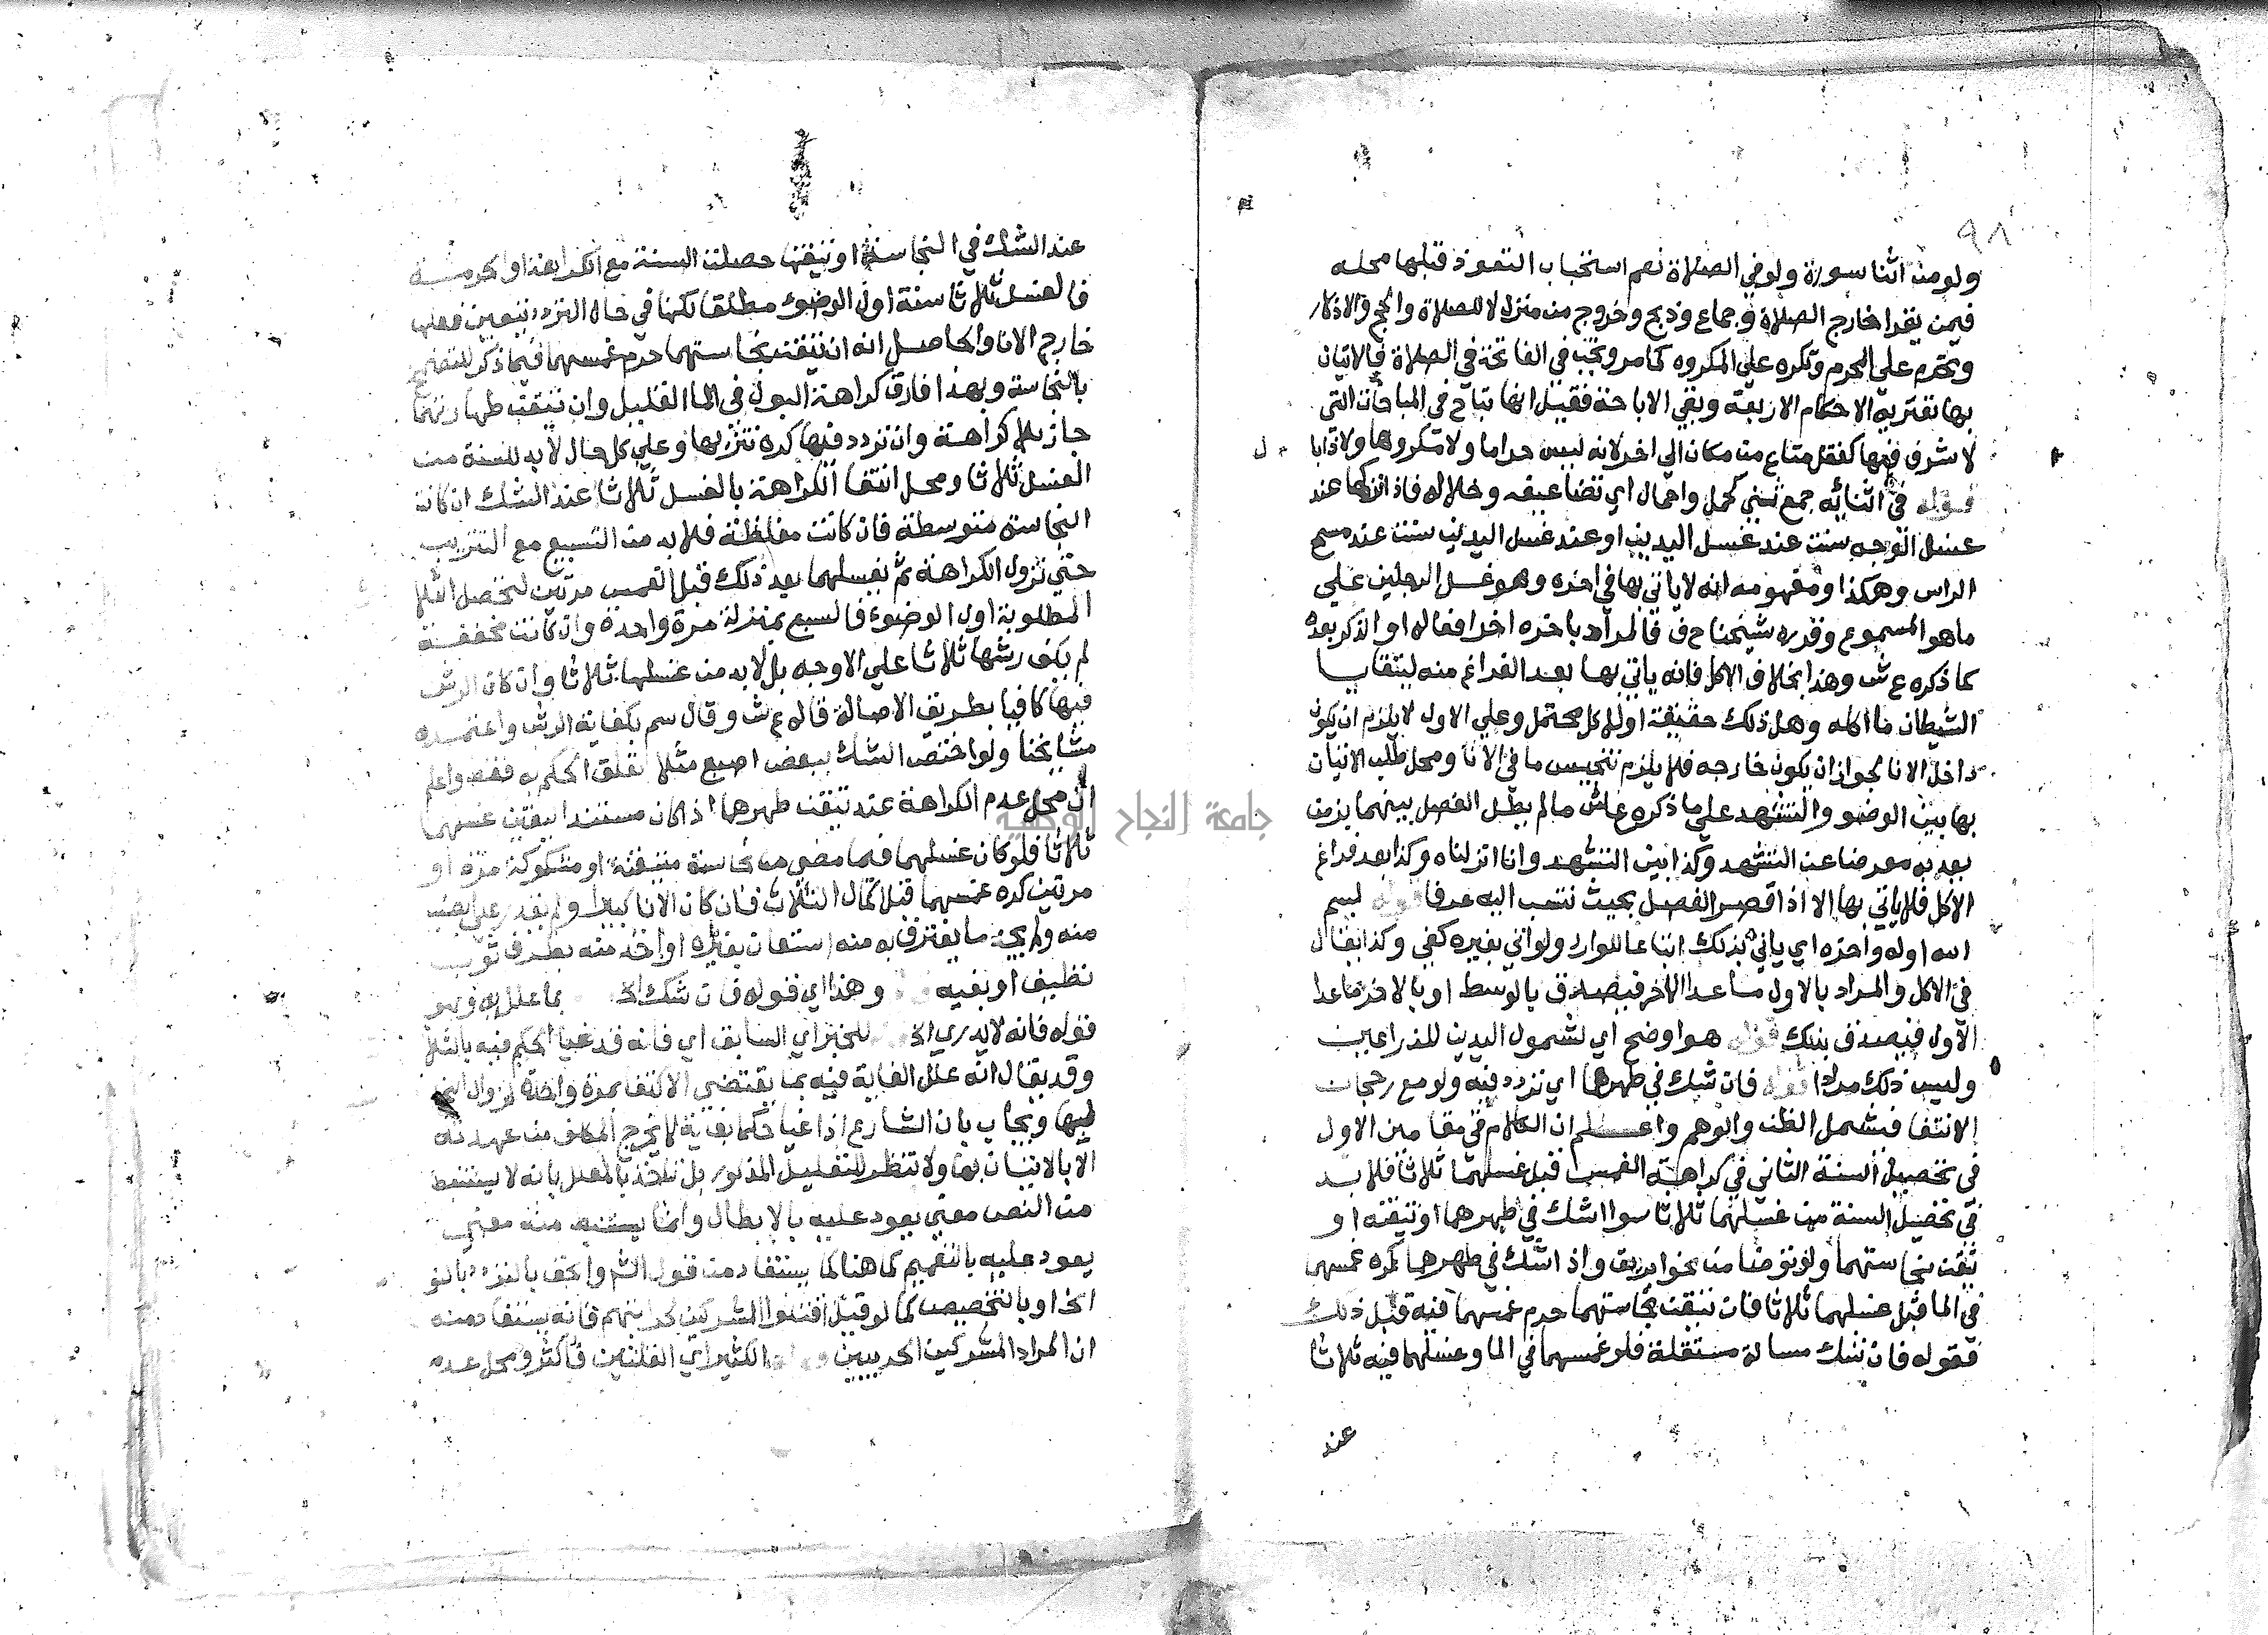 ٩٨
ولو من اثنا سورة ولو في الصلاة نعم استحباب التعوذ قبلها محله
فيمن يقرا خارج الصلاة و جماع وذبح وخروج من منزل لا للصلاة والحج والاذكار
وتحرم على المحرم وتكره على المكروه كما مر وتجب في الفاتحة في الصلاة فالاتيان
بها تعتريه الاحكام الاربعة وبقي الاباحة فقيل انها تباح في المباحات التي
لا شرف فيها كنقل متاع من مكان الى اخر لانه ليس حراما ولا مكروها ولا ذا با
قوله في اثنائه جمع ثني كحمل واحمال اي تضاعيفه وخلاله فاذا تركها عند
غسل الوجه سنت عند غسل اليدين او عند غسل اليدين سنت عند مسح
الراس وهكذا ومفهومه انه لا ياتي بها في اخره وهو غسل الرجلين على
ما هو المسموع وقرره شيخنا ح ف فالمراد باخره اخر افعاله او الذكر بعده
كما ذكره ع ش وهذا بخلاف الاكل فانه ياتي بها بعد الفراغ منه ليتقايا
الشيطان ما اكله وهل ذلك حقيقة اولا كل محتمل وعلى الاول لا يلزم ان يكون
داخل الانا لجواز ان يكون خارجه فلا يلزم تنجيس ما في الانا ومحل طلب الاتيان
بها بين الوضو والتشهد على ما ذكره ع ش ما لم يطل الفصل بينهما بزمن
يعد به معرضا عن التشهد وكذا بين التشهد وانا انزلناه وكذا بعد فراغ
الاكل فلا ياتي بها الا اذا قصر الفصل بحيث تنسب اليه عرفا قوله بسم
الله اوله واخره اي ياتي بذلك اتباعا للوارد ولو اتى بغيره كفى وكذا يقال
في الاكل والمراد بالاول ما عدا الاخر فيصدق بالوسط او بالاخر ما عدا
الاول فيصدق بذلك قوله هو اوضح اي لشمول اليدين للذراعين
وليس ذلك مرادا قوله فان شك في طهرهما اي تردد فيه ولو مع رجحان
الانتفا فشمل الظن والوهم واعلم ان الكلام في مقامين الاول
في تحصيل السنة الثاني في كراهة الغمس قبل غسلهما ثلاثا فلا بد
في تحصيل السنة من غسلهما ثلاثا سوا شك في طهرهما او تيقنه او
تيقن نجاستهما ولو توضا من نحو ابريق واذا شك في طهرهما كره غمسهما
في الما قبل غسلهما ثلاثا فان تيقن نجاستهما حرم غمسهما فيه قبل ذلك
فقوله فان شك مسالة مستقلة فلو غمسهما في الما وغسلهما فيه ثلاثا
عند
عند الشك في النجاسة او تيقنها حصلت السنة مع الكراهة او الحرمة
فالغسل ثلاثا سنة اول الوضوء مطلقا لكنها في حال التردد يتعين فعلها
خارج الانا والحاصل انه ان تيقن نجاستهما حرم غمسهما فيما ذكر للتضمخ
بالنجاسة وبهذا فارق كراهة البول في الما القليل وان تيقن طهارتهما
جاز بلا كراهة وان تردد فيها كره تنزيها وعلى كل حال لا بد للسنة من
الغسل ثلاثا ومحل انتفا الكراهة بالغسل ثلاثا عند الشك ان كانت
النجاسة متوسطة فان كانت مغلظة فلا بد من التسبيع مع التتريب
حتى تزول الكراهة ثم يغسلهما بعد ذلك قبل الغمس مرتين لتحصل الثلا
المطلوبة اول الوضوء فالسبع بمنزلة مرة واحدة وان كانت مخففة
لم يكف رشها ثلاثا على الاوجه بل لا بد من غسلها ثلاثا وان كان الرش
فيها كافيا بطريق الاصالة قاله ع ش وقال سم بكفاية الرش واعتمده
مشايخنا ولو اختص الشك ببعض اصبع مثلا تعلق الحكم به فقط واعلم
ان محل عدم الكراهة عند تيقن طهرهما اذا كان مستندا ليقين غسلهما
ثلاثا فلو كان غسلهما فيما مضى من نجاسة متيقنة او مشكوكة مرة او
مرتين كره غمسهما قبل اكمال الثلاث فان كان الانا كبيرا ولم يقدر على الصب
منه ولم يجد ما يغترف به منه استعان بغيره او اخذ منه بطرف ثوب
نظيف او بفيه وهذا اي قوله فان شك الخ بما علل به وهو
قوله فانه لا يدري الخ للخبر اي السابق اي فانه قد غيا الحكم فيه بالثلا
وقد يقال انه علل الغاية فيه بما يقتضي الاكتفا بمرة واحدة لزوال
فيها ويجاب بان الشارع اذا غيا حكما بغاية لا يخرج المكلف من عهدته
الا بالاتيان بها ولا تنظر للتعليل المذكور بل ناخذ بالمعلل بانه لا يستنبط
من النص معنى يعود عليه بالابطال وانما يستنبط منه معنى
يعود عليه بالتعميم كما هنا كما يستفاد من قول الش والحق بالتردد بالنو
الخ او بالتخصيص كما لو قيل اقتلوا المشركين لحرابتهم فانه يستفاد منه
ان المراد المشركين الحربيين الكثير اي القلتين فاكثر ومحل عدم
جامعة النجاح الوطنية